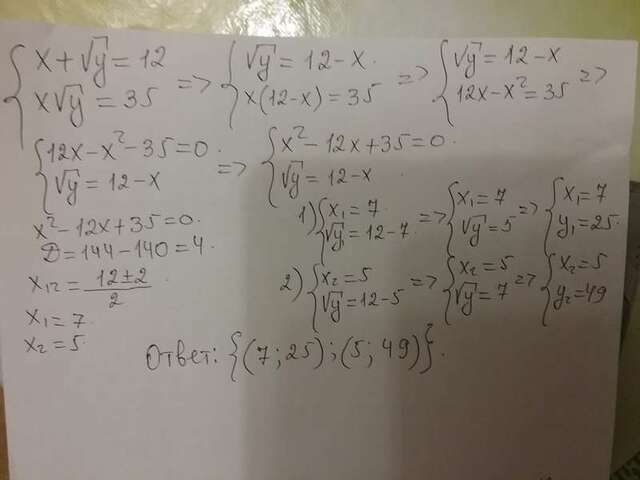 {x+√y=12 x√y=35 => {√y=12-x. x(12-x)=35 => {√y=12-x 12x-x²=35 =>
{12x-x²-35=0. √y=12-x => {x²-12x+35=0. √y=12-x.
x²-12x+35=0.
D=144-140=4.
x₁₂=12±2/2.
x₁=7.
x₂=5.
1) {x₁=7. √y₁=12-7 => {x₁=7 √y=5 => {x₁=7 y₁=25.
2) {x₂=5 √y=12-5 => {x₂=5 √y=7 => {x₂=5 y₂=49
Ответ: {(7;25);(5;49)}.